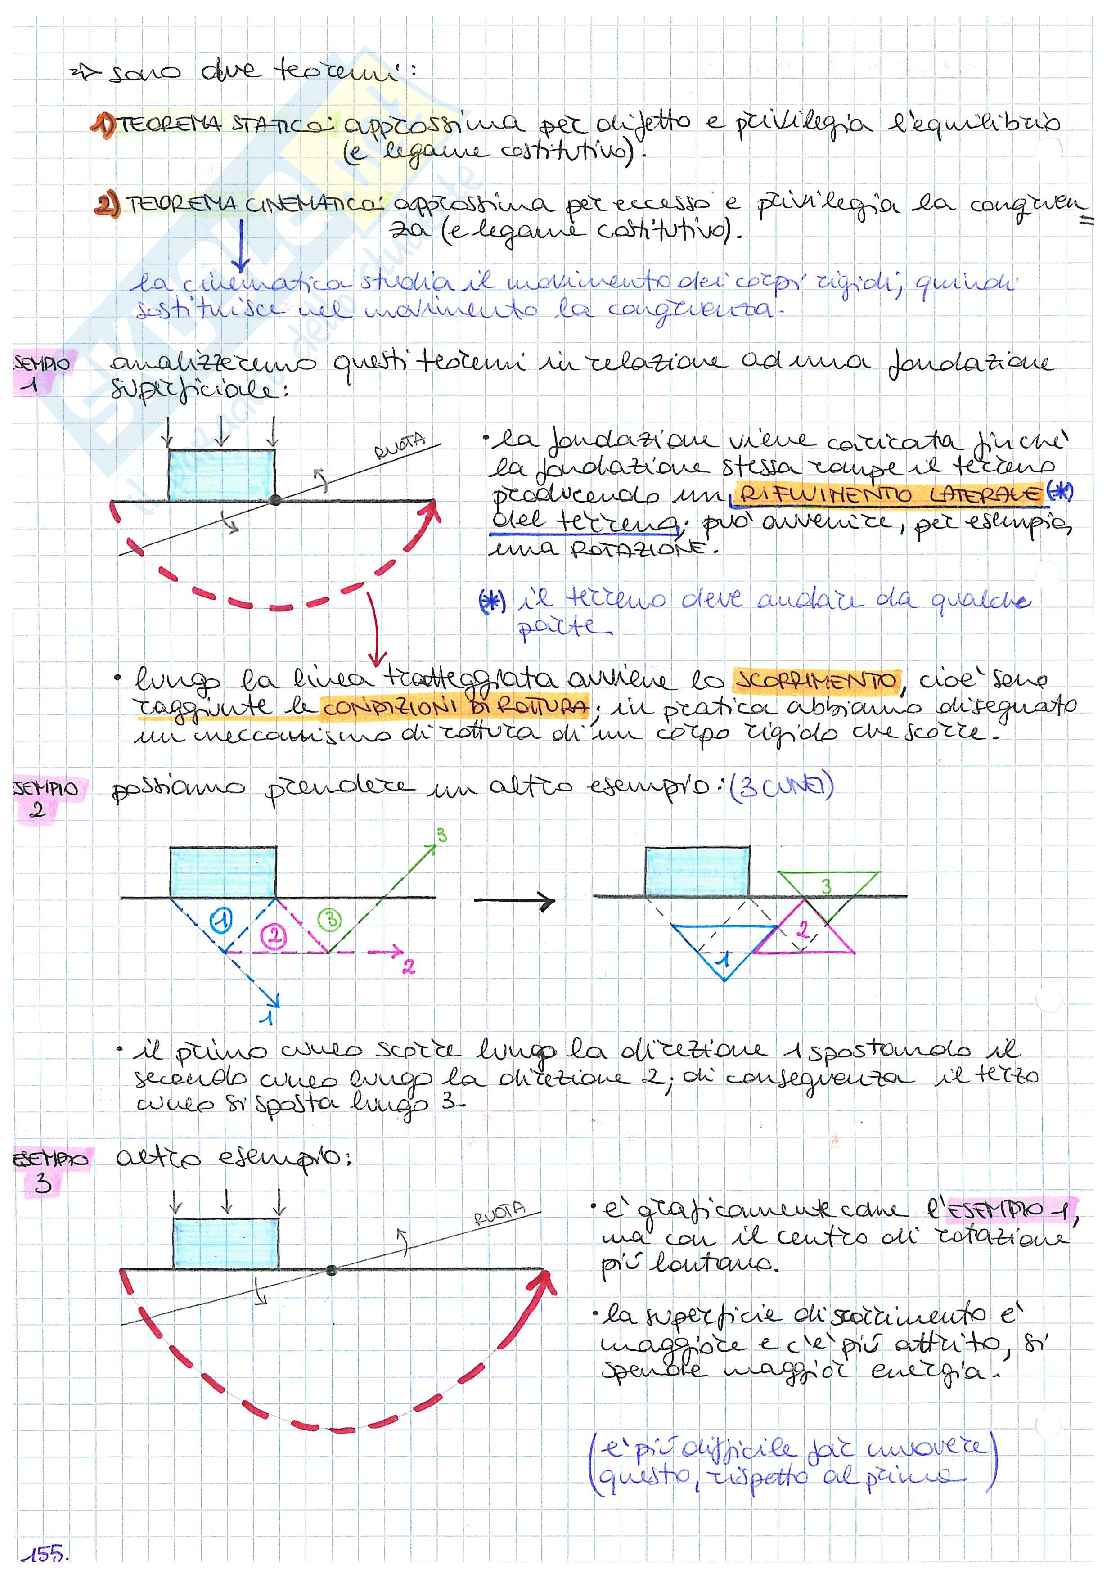 => sono due teoremi:
1) TEOREMA STATICO: approssima per difetto e privilegia l'equilibrio
(e legame costitutivo).
2) TEOREMA CINEMATICO: approssima per eccesso e privilegia la congruen=
za (e legame costitutivo).
la cinematica studia il movimento dei corpi rigidi, quindi
sostituisce nel movimento la congruenza.
SEMPIO
1
analizzeremo questi teoremi in relazione ad una fondazione
superficiale:
RUOTA
• la fondazione viene caricata finché
la fondazione stessa rompe il terreno
producendo un RIFLUIMENTO LATERALE (*)
del terreno; può avvenire, per esempio,
una ROTAZIONE.
(*) il terreno deve andare da qualche
parte
• lungo la linea tratteggiata avviene lo SCORRIMENTO, cioè sono
raggiunte le CONDIZIONI DI ROTTURA; in pratica abbiamo disegnato
un meccanismo di rottura di un corpo rigido che scorre.
SEMPIO
2
possiamo prendere un altro esempio: (3 CUNEI)
3
1
2
3
2
1
3
2
1
• il primo cuneo scorre lungo la direzione 1 spostando il
secondo cuneo lungo la direzione 2; di conseguenza il terzo
cuneo si sposta lungo 3.
ESEMPIO
3
altro esempio:
RUOTA
• è graficamente come l'ESEMPIO 1,
ma con il centro di rotazione
più lontano.
• la superficie di scorrimento è
maggiore e c'è più attrito, si
spende maggior energia.
(è più difficile far muovere
questo, rispetto al primo)
155.